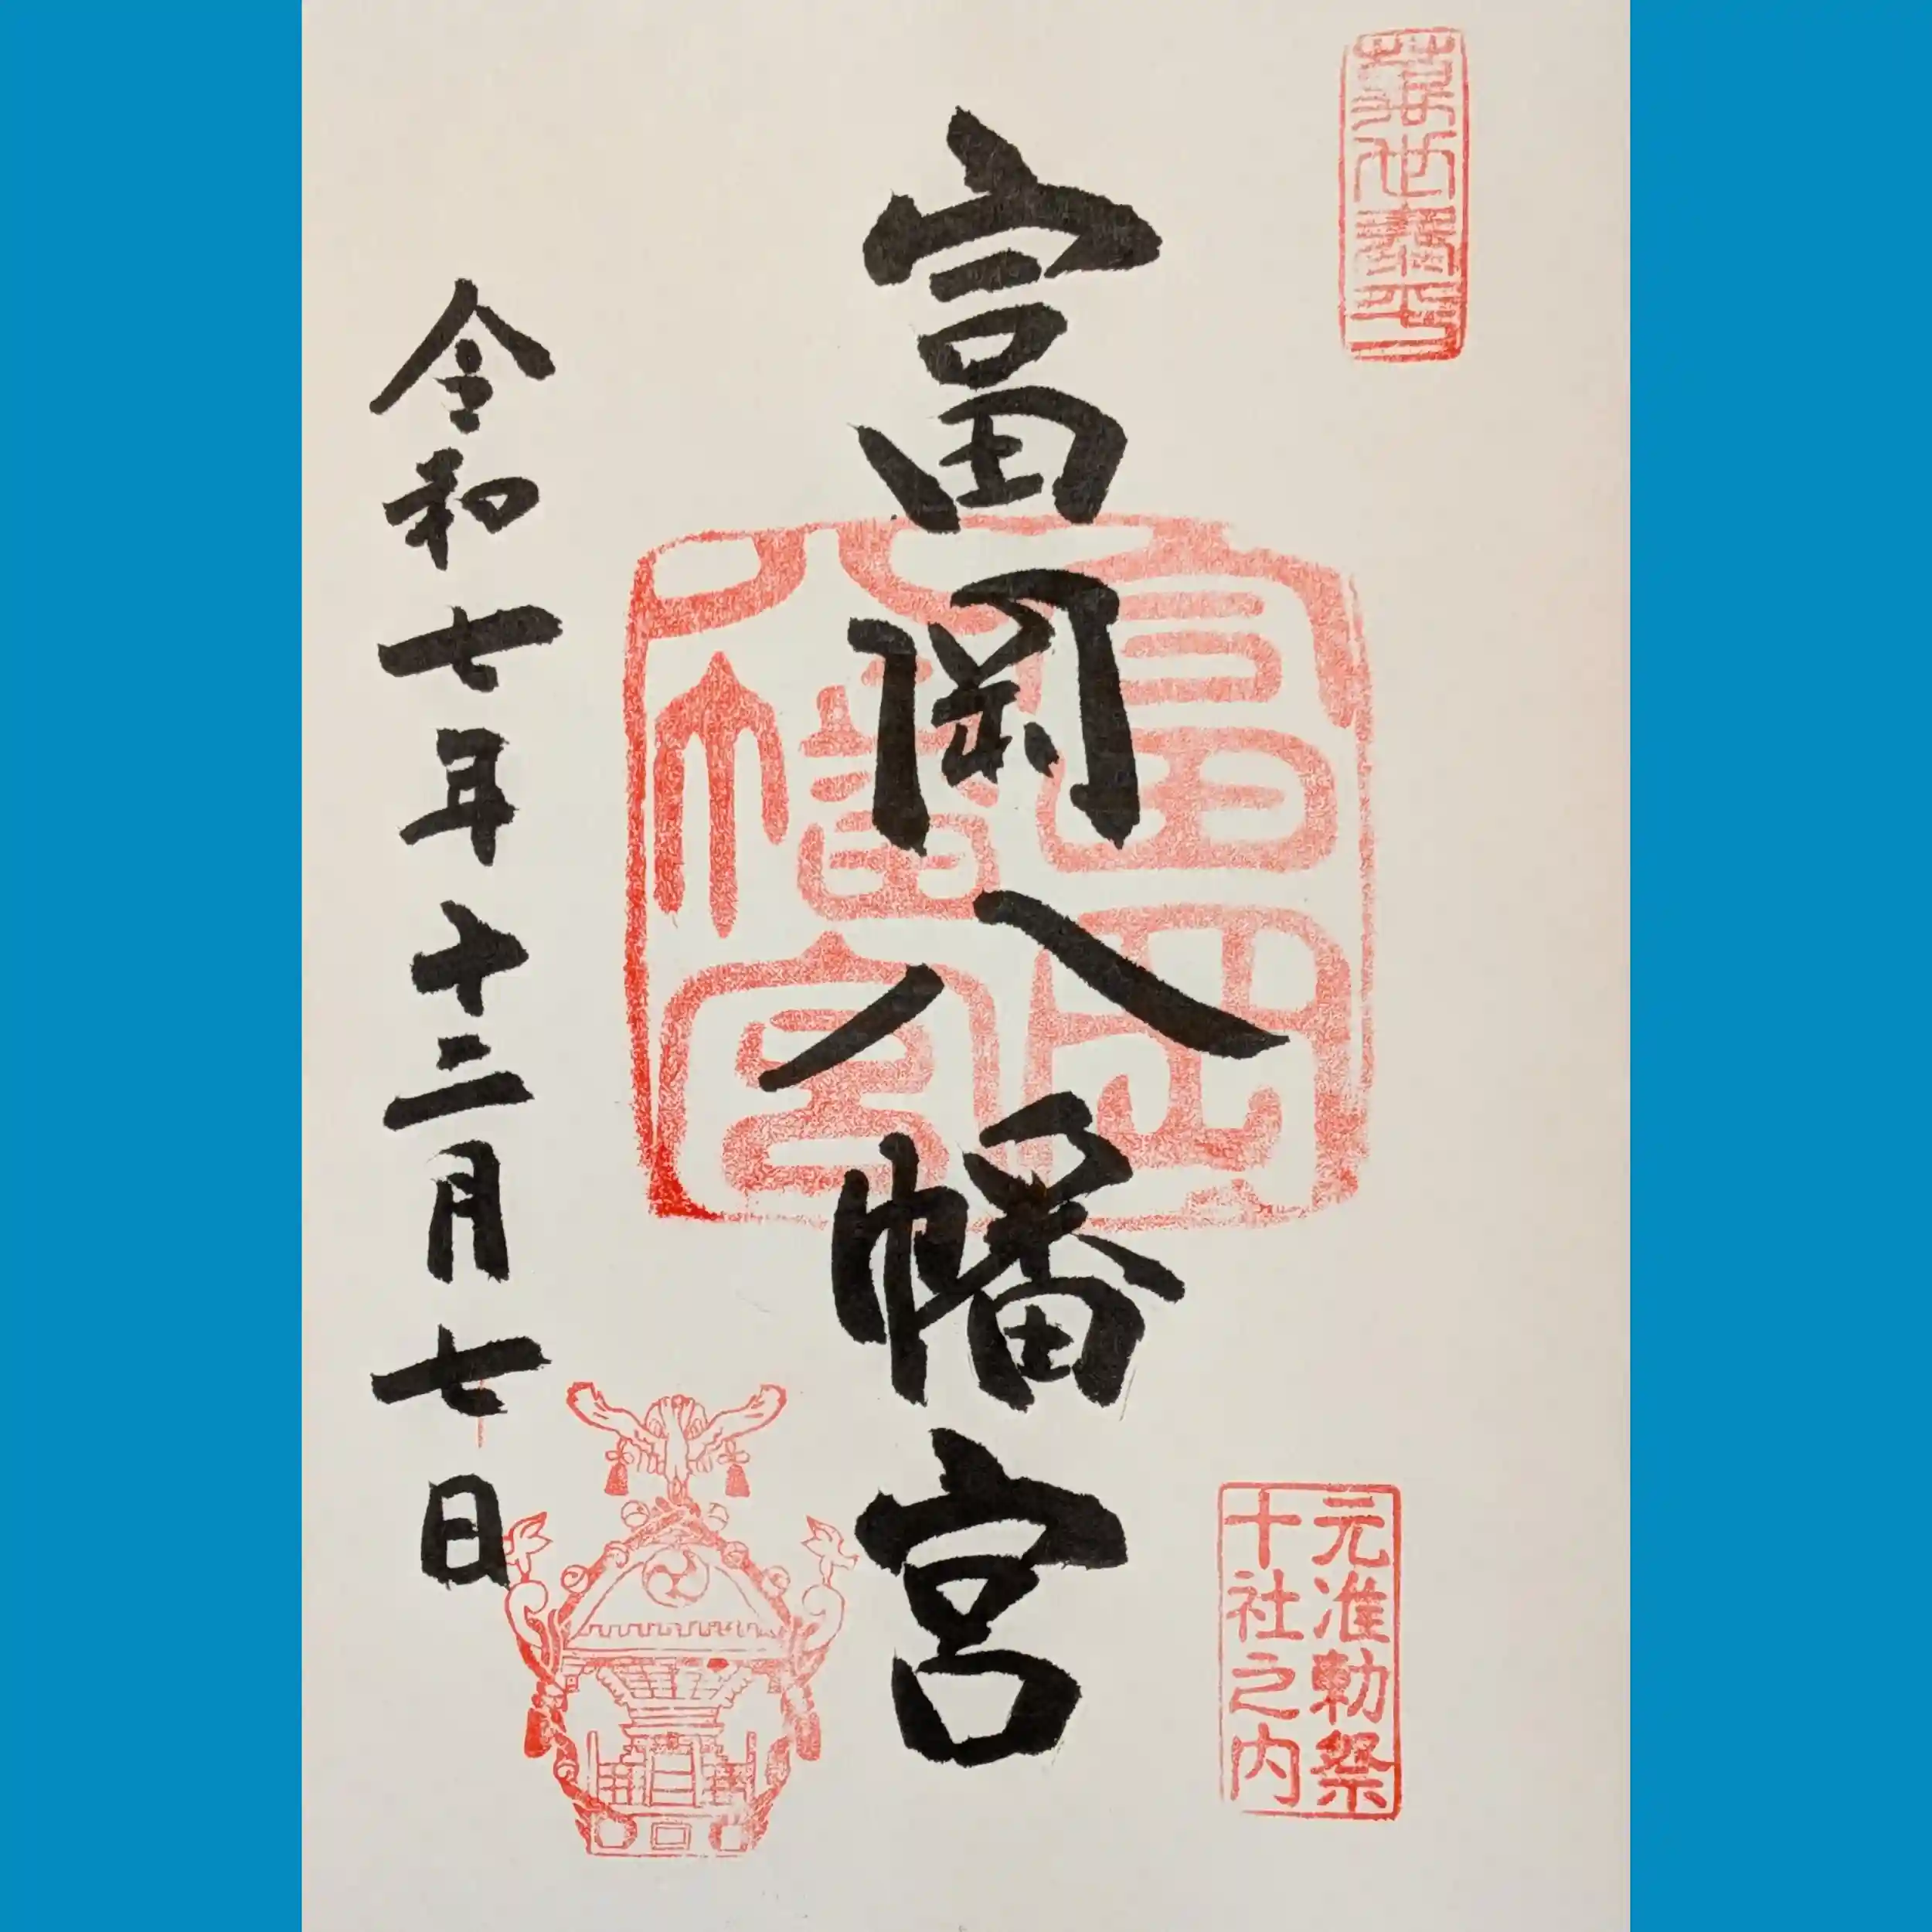 葉世泰平
富岡八幡宮
富岡
八幡宮
元准勅祭
十社之内
令和七年十二月七日